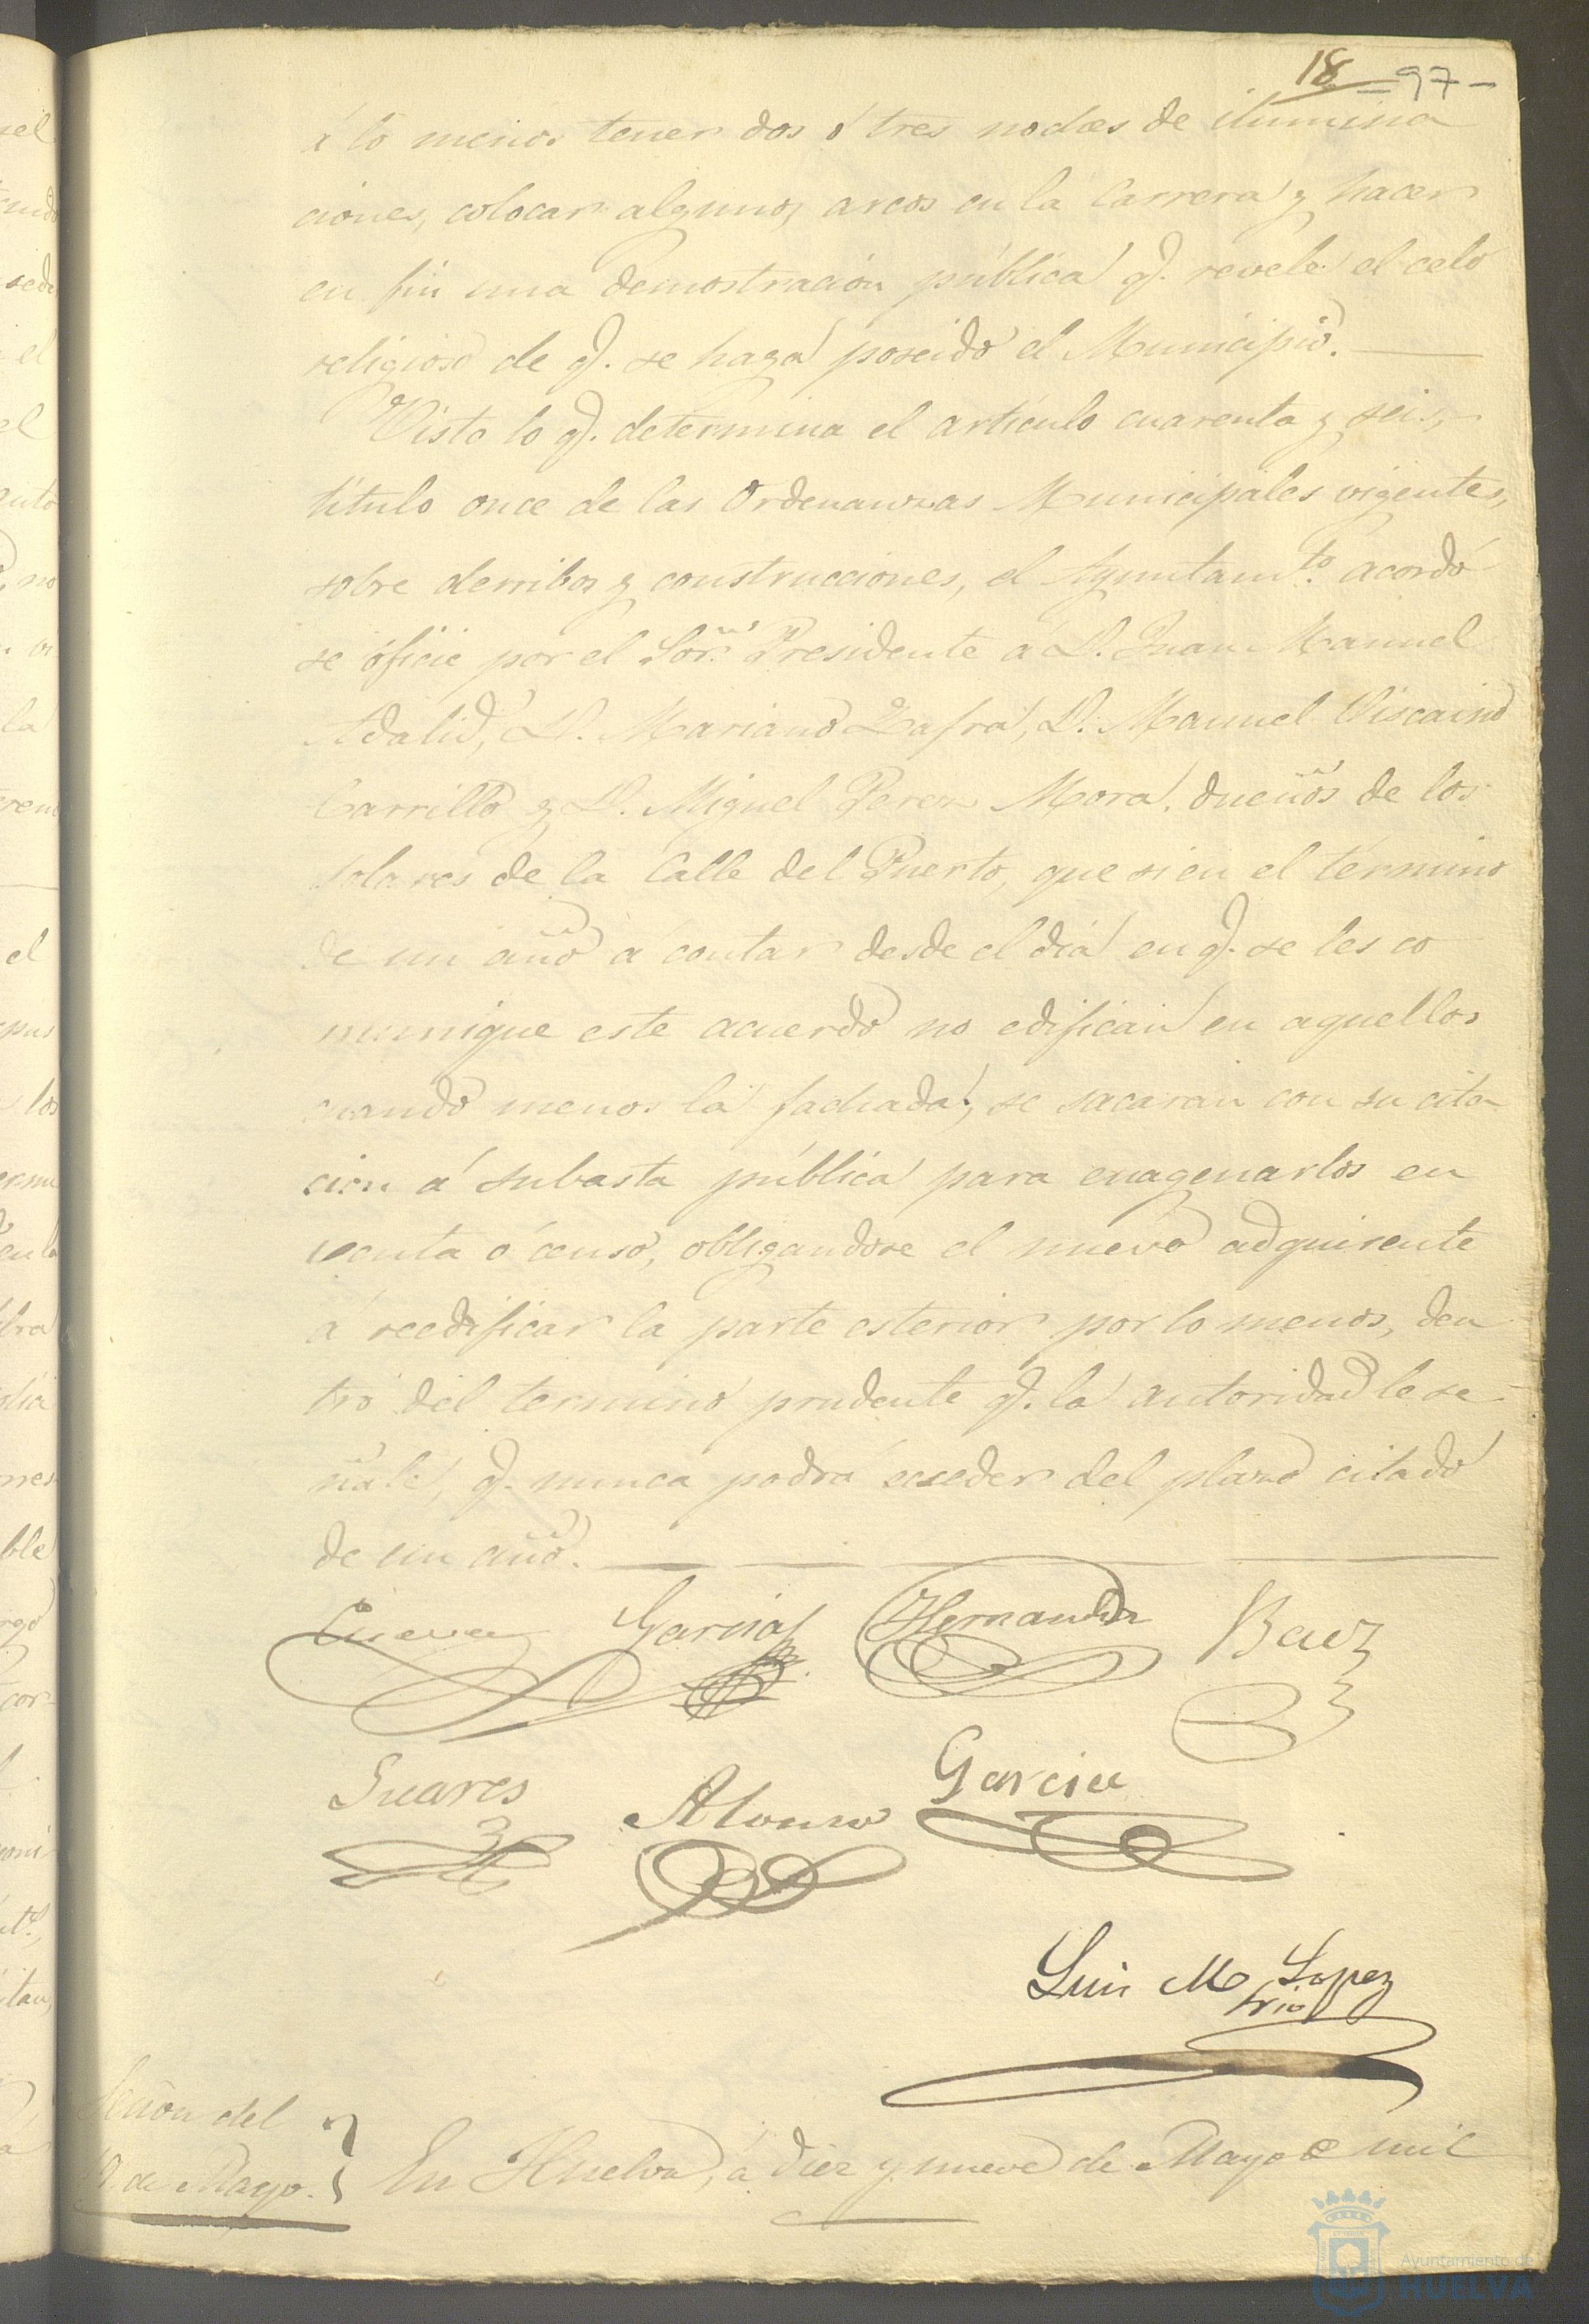 18 = 97 -
á lo menos tener dos ó tres noches de ilumina
ciones, colocar algunos arcos en la Carrera y hacer
en fin una demostración pública q. revele el celo
religioso de q. se haya poseido el Municipio.
Visto lo q. determina el artículo cuarenta y seis,
título once de las Ordenanzas Municipales vigentes,
sobre derribos y construcciones, el Ayuntamto. acordó
se oficie por el Sor. Presidente á D. Juan Manuel
Adalid, D. Mariano Zafra, D. Manuel Viscaino
Carrillo y D. Miguel Perez Mora, dueños de los
solares de la Calle del Puerto, que si en el término
de un año á contar desde el dia en q. se les co
munique este acuerdo no edifican en aquellos
cuando menos la fachada, se sacarán con su cita
cion á subasta pública para enagenarlos en
venta ó censo, obligandose el nuevo adquirente
á reedificar la parte esterior por lo menos, den
tro del termino prudente q. la autoridad le se
ñale, q. nunca podrá esceder del plazo citado
de un año.
Cueva Garcia Hernandez Baez
Suares Alonso Garcia
Luis M Lopez
Srio
Sesion del
19 de Mayo. En Huelva, á diez y nueve de Mayo de mil
Ayuntamiento de
HUELVA